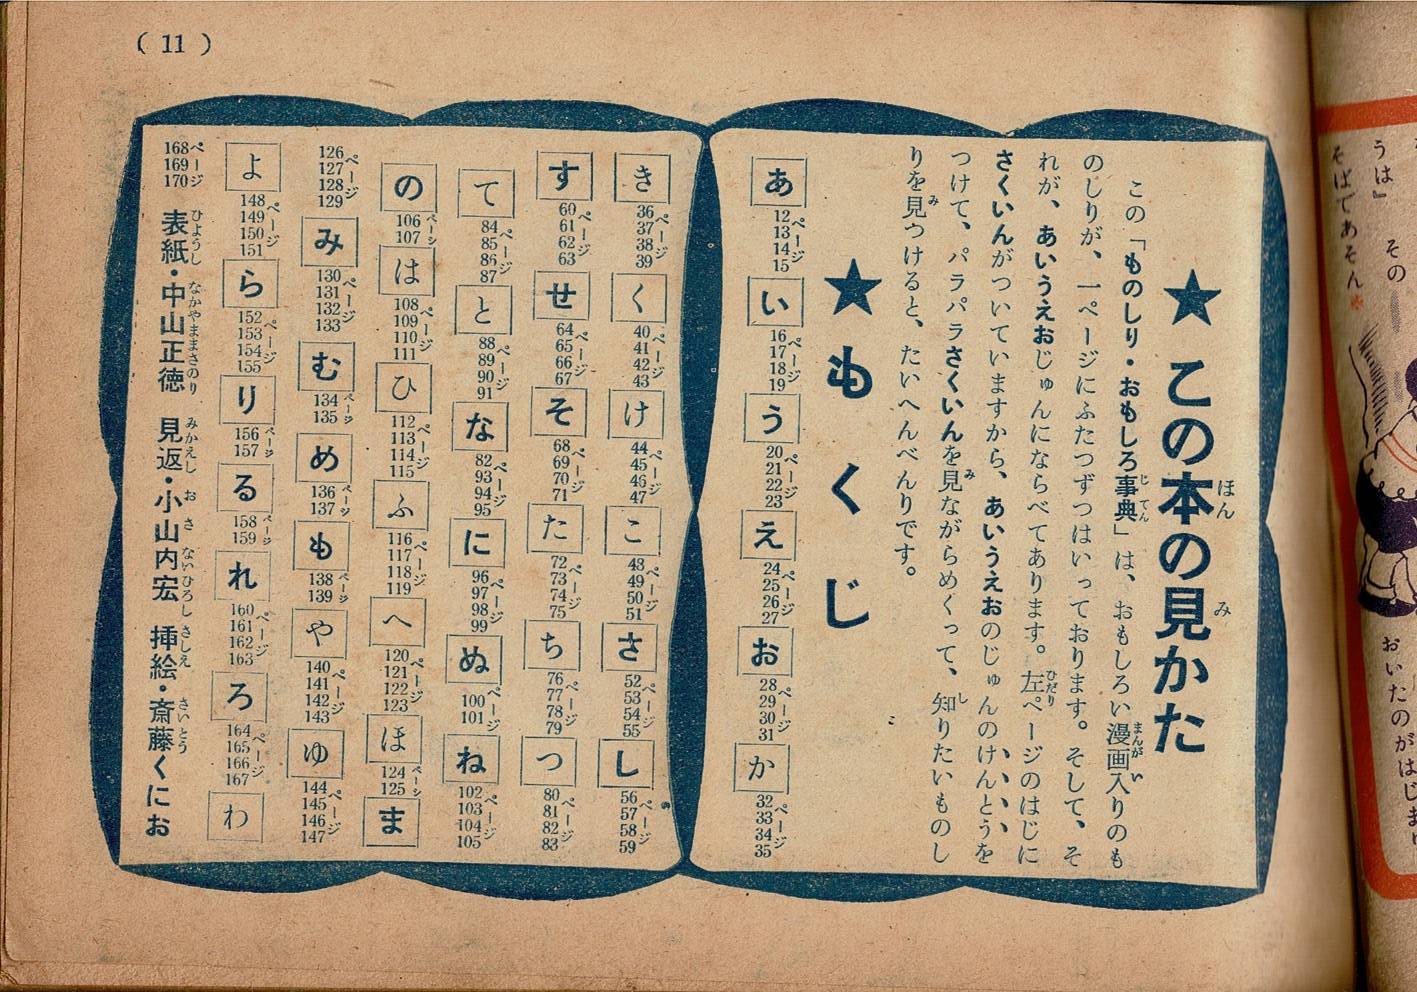 ( 11 )
★この本の見かた
この「ものしり・おもしろ事典」は、おもしろい漫画入りのも
のしりが、一ページにふたつずつはいっております。そして、そ
れが、あいうえおじゅんにならべてあります。左ページのはじに
さくいんがついていますから、あいうえおのじゅんのけんとうを
つけて、パラパラさくいんを見ながらめくって、知りたいものし
りを見つけると、たいへんべんりです。
★もくじ
あ 12 13 14 15ページ い 16 17 18 19ページ う 20 21 22 23ページ え 24 25 26 27ページ お 28 29 30 31ページ か 32 33 34 35ページ
き 36 37 38 39ページ く 40 41 42 43ページ け 44 45 46 47ページ こ 48 49 50 51ページ さ 52 53 54 55ページ し 56 57 58 59ページ
す 60 61 62 63ページ せ 64 65 66 67ページ そ 68 69 70 71ページ た 72 73 74 75ページ ち 76 77 78 79ページ つ 80 81 82 83ページ
て 84 85 86 87ページ と 88 89 90 91ページ な 82 93 94 95ページ に 96 97 98 99ページ ぬ 100 101ページ ね 102 103 104 105ページ
の 106 107ページ は 108 109 110 111ページ ひ 112 113 114 115ページ ふ 116 117 118 119ページ へ 120 121 122 123ページ ほ 124 125ページ ま
126 127 128 129ページ み 130 131 132 133ページ む 134 135ページ め 136 137ページ も 138 139ページ や 140 141 142 143ページ ゆ 144 145 146 147ページ
よ 148 149 150 151ページ ら 152 153 154 155ページ り 156 157ページ る 158 159ページ れ 160 161 162 163ページ ろ 164 165 166 167ページ わ
168 169 170ページ 表紙・中山正徳 見返・小山内宏 挿絵・斎藤くにお
うは』 その
そばであそん
おいたのがはじまり